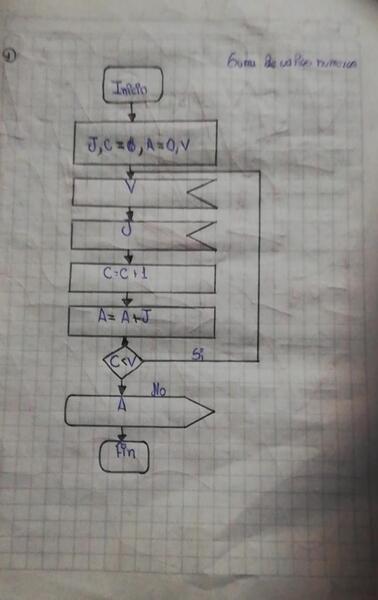 1
Suma de varios numeros
Inicio
J, C = 0, A = 0, V
V
J
C = C + 1
A = A + J
C < V
Si
No
A
Fin